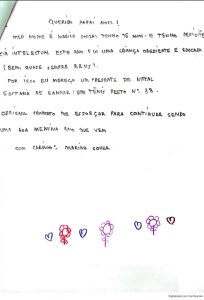 QUERIDO PAPAI NOEL!
MEU NOME É MARINA SOUSA TENHO 15 ANOS. E TENHO DEFICIÊN
CIA INTELECTUAL ESTE ANO FUI UMA CRIANÇA OBEDIENTE E EDUCADA
(BEM, QUASE SEMPRE RSRS).
POR ISSO EU MEREÇO UM PRESENTE DE NATAL
GOSTARIA DE GANHAR: UM TÊNIS PRETO Nº 38.
OBRIGADA, PROMETO ME ESFORÇAR PARA CONTINUAR SENDO
UMA BOA MENINA ANO QUE VEM
COM CARINHO: MARINA SOUSA.